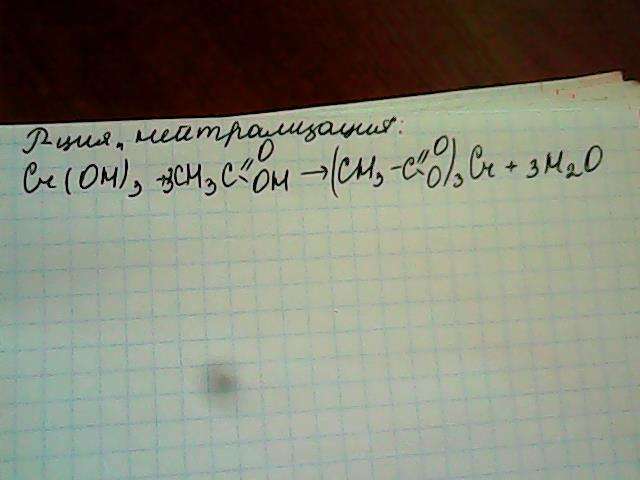 Р-ция, нейтрализация:
Cr(OH)3 + 3CH3C=O-OH → (CH3-C=O-O)3Cr + 3H2O